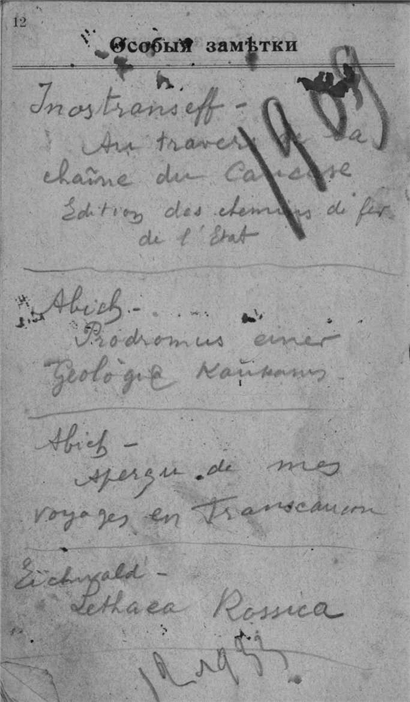 12
Особыя замѣтки
1909
Inostranseff -
Au travers de la
chaîne du Caucase
Edition des chemins de fer
de l'Etat
Abich -
Prodromus einer
Geologie Kaukasus
Abich -
Aperçu de mes
voyages en Transcaucas
Eichwald -
Lethaea Rossica